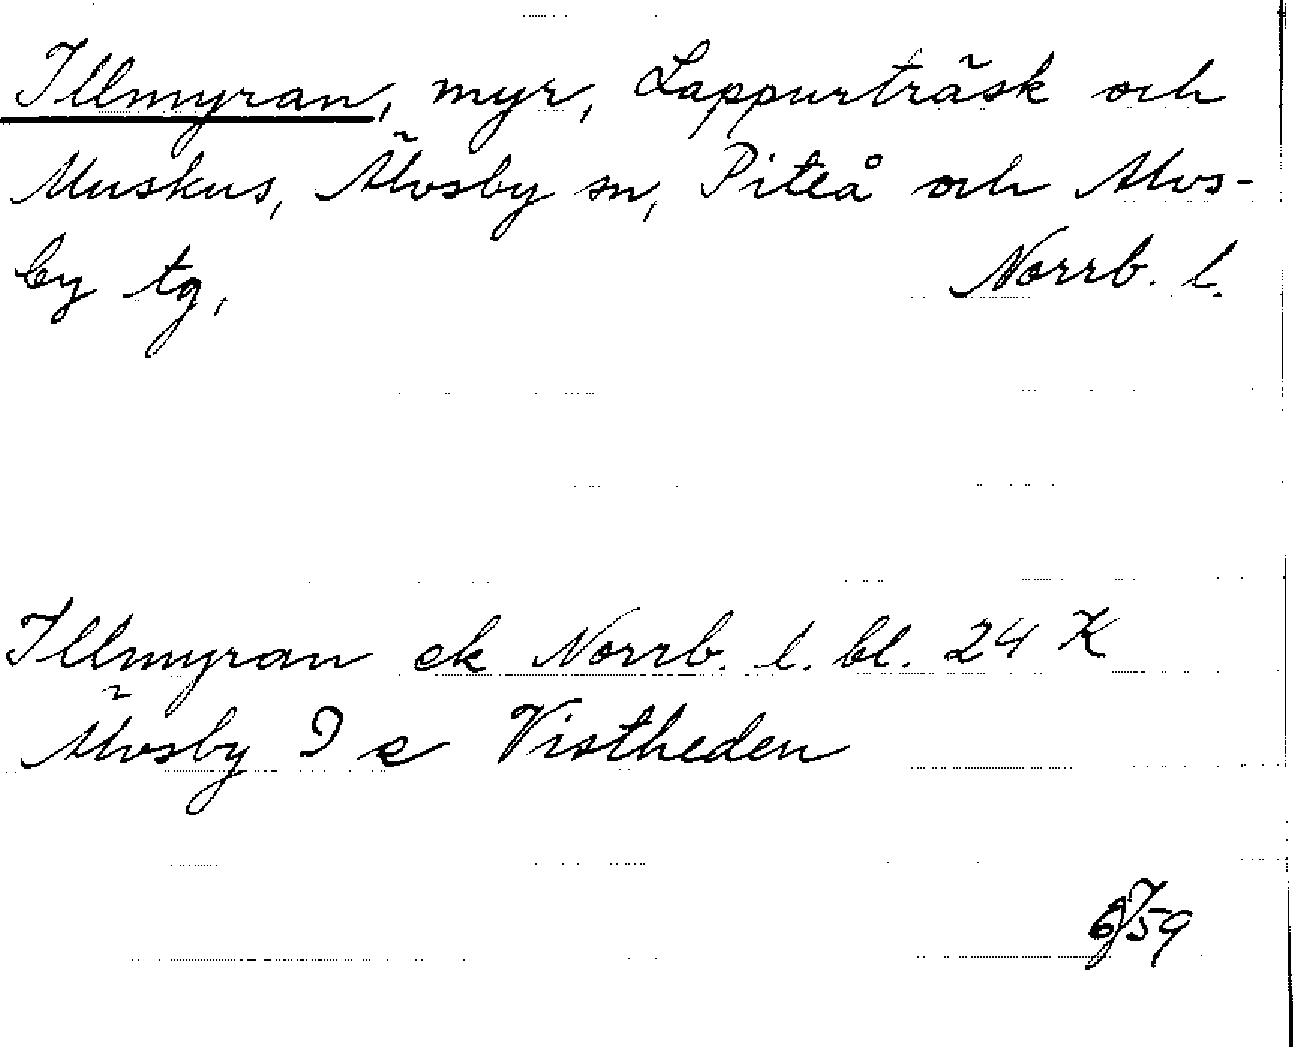 Illmyran, myr, Lappurträsk och
Muskus, Älvsby sn, Piteå och Älvs-
by tg, Norrb. l.
Illmyran ek Norrb. l. bl. 24 K
Älvsby I e Vistheden